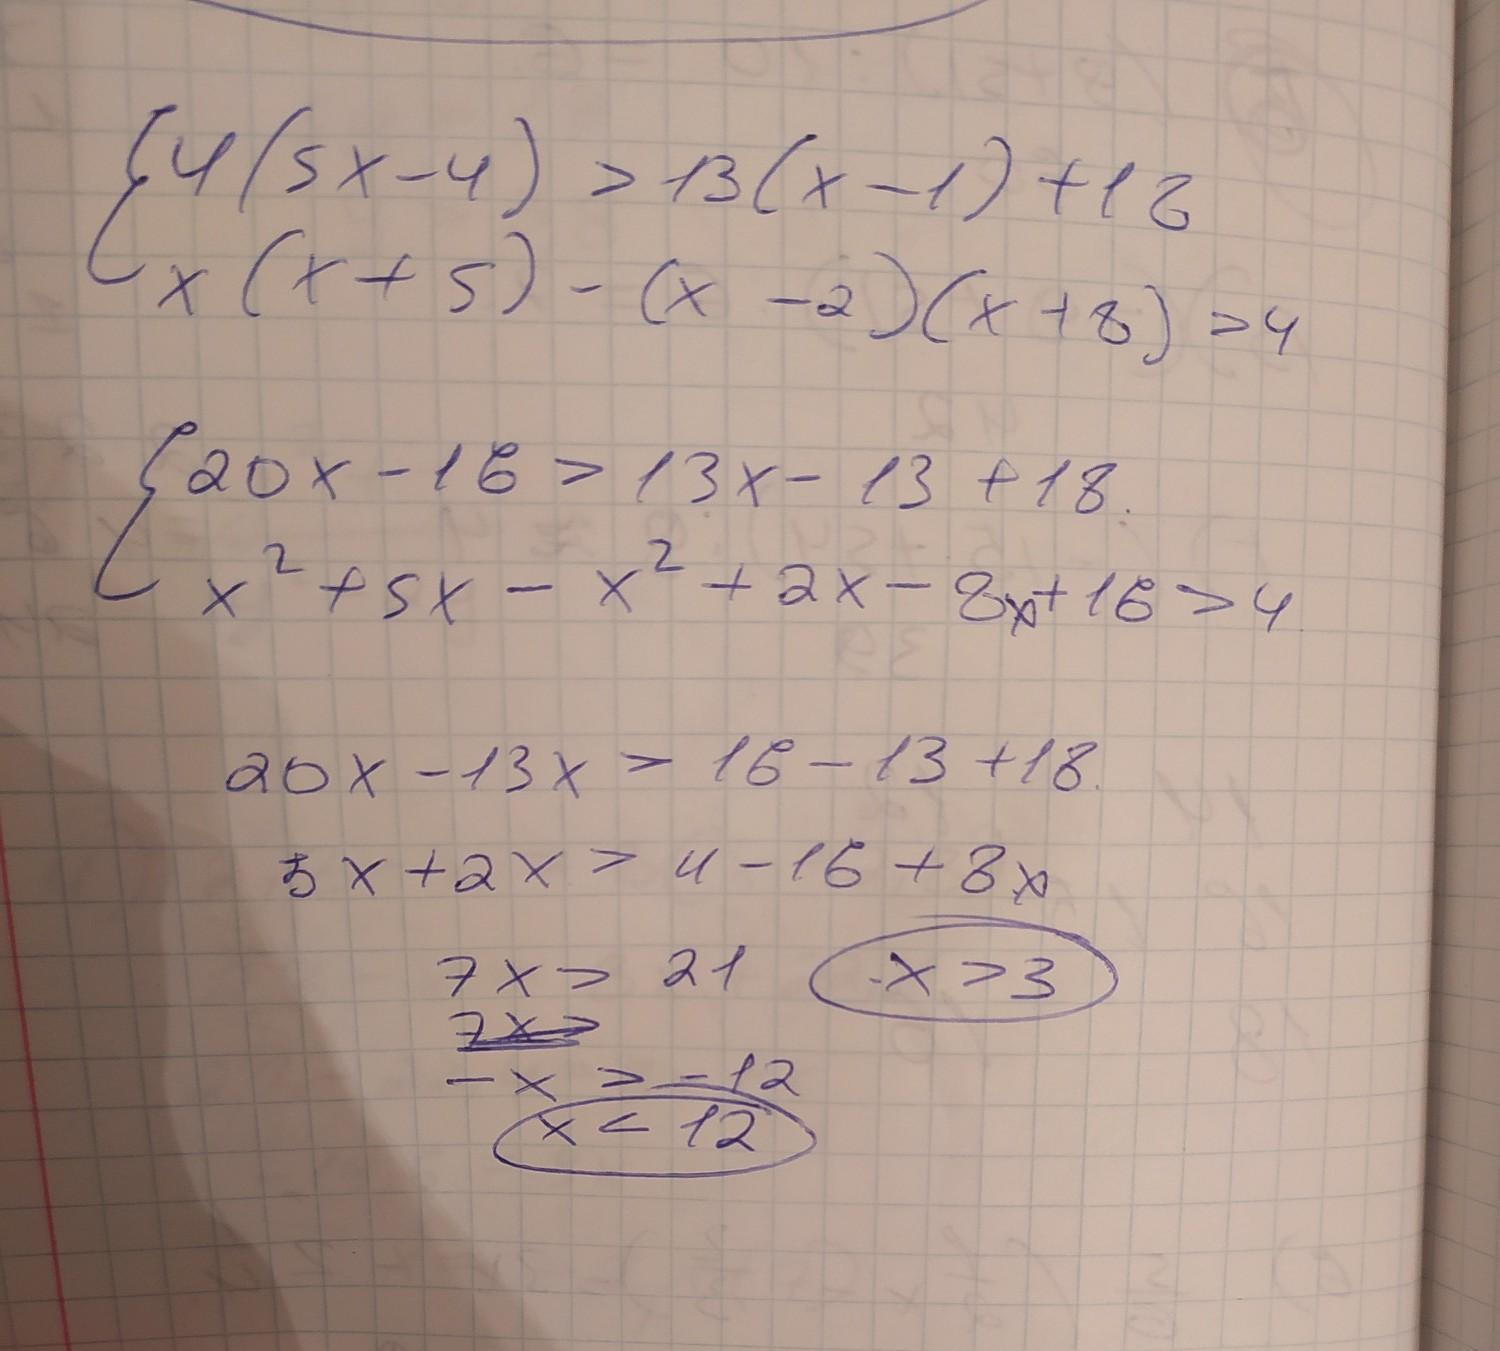 {4(5x-4) > 13(x-1)+18
x(x+5)-(x-2)(x+8)>4
{20x-16 > 13x-13+18.
x²+5x-x²+2x-8x+16>4
20x-13x > 16-13+18.
5x+2x > 4-16+8x
7x > 21 x>3
7x>
-x > -12
x < 12